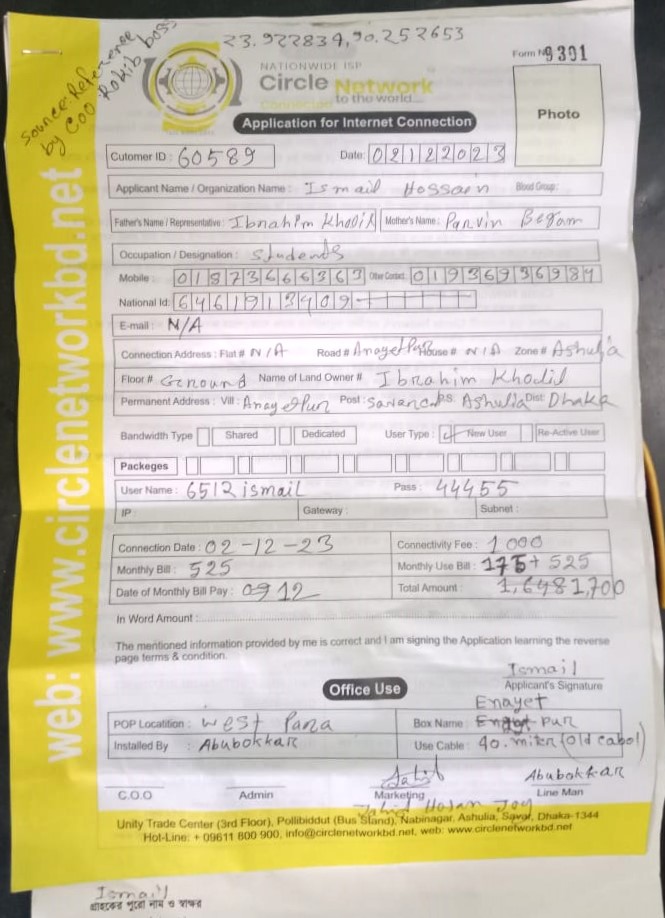 23.922834,90.252653
Source Reference
by COO Rokib boss
Form No 9301
NATIONWIDE ISP
Circle Network
Connected to the world...
Application for Internet Connection
Photo
Cutomer ID : 60589 Date: 02122023
Applicant Name / Organization Name : Ismail Hossain Blood Group:
Father's Name / Representative : Ibrahim Kholil Mother's Name : Parvin Begam
Occupation / Designation : Students
Mobile : 01873666363 Other Contact: 01936936984
National Id: 6461913409
E-mail : N/A
Connection Address : Flat # N/A Road # Anayetpur House # N/A Zone # Ashulia
Floor # Ground Name of Land Owner # Ibrahim Kholil
Permanent Address : Vill : Anayetpur Post : PS: Ashulia Dist: Dhaka
Bandwidth Type Shared Dedicated User Type : New User Re-Active User
Packeges
User Name : 6512ismail Pass : 44455
IP : Gateway : Subnet :
Connection Date : 02-12-23 Connectivity Fee : 1000
Monthly Bill : 525 Monthly Use Bill : 175+ 525
Date of Monthly Bill Pay : 0912 Total Amount : 1,700
In Word Amount :
The mentioned information provided by me is correct and I am signing the Application learning the reverse
page terms & condition.
Ismail
Applicant's Signature
Office Use
Enayet
POP Locatition : West Para Box Name : pur
Installed By : Abubokkar Use Cable : 40. miter (old cabol)
Abubokkar
C.O.O Admin Marketing Line Man
Jahid Hasan Joy
Unity Trade Center (3rd Floor), Pollibiddut (Bus Stand), Nabinagar, Ashulia, Savar, Dhaka-1344
Hot-Line: + 09611 800 900, info@circlenetworkbd.net, web: www.circlenetworkbd.net
web: www.circlenetworkbd.net
Ismail
গ্রাহকের পুরো নাম ও স্বাক্ষর